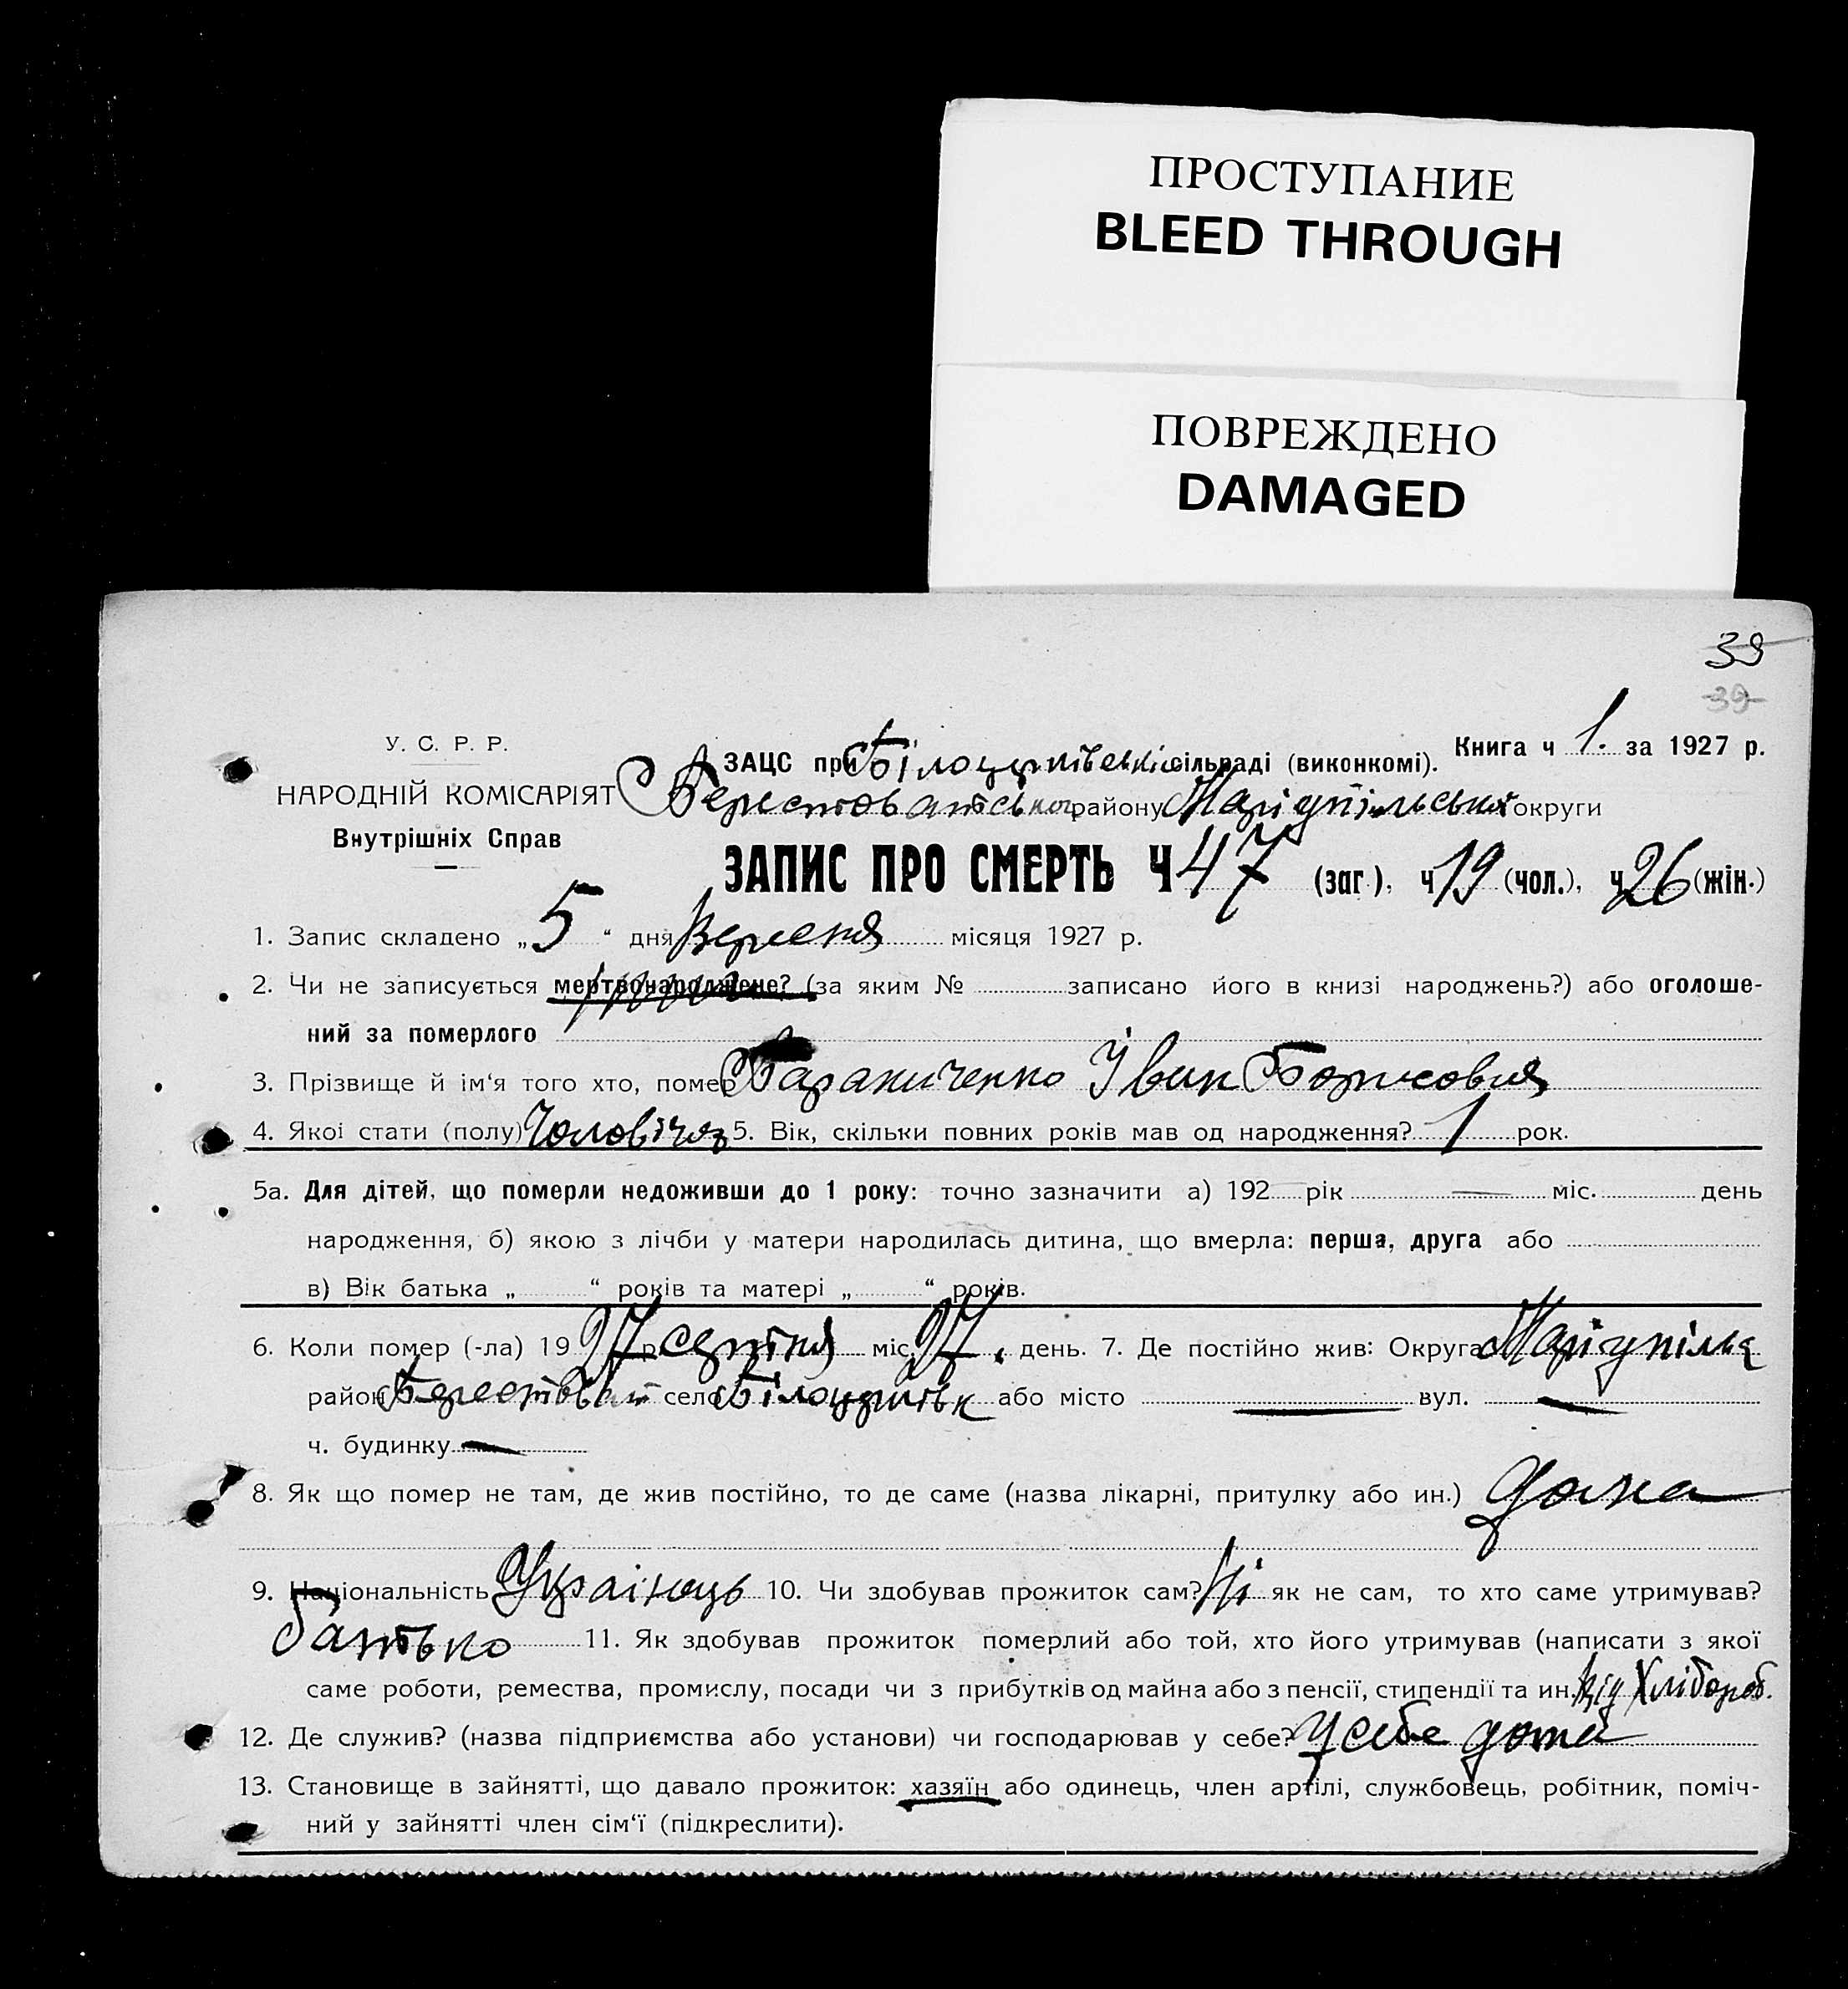 ПРОСТУПАНИЕ
BLEED THROUGH
ПОВРЕЖДЕНО
DAMAGED
39
39
У. С. Р. Р.
НАРОДНІЙ КОМІСАРІЯТ
Внутрішніх Справ
ЗАЦС при Білоцерківські сільраді (виконкомі). Книга ч 1. за 1927 р.
району Маріупільської округи
ЗАПИС ПРО СМЕРТЬ Ч 47 (заг.), ч 19 (чол.), ч 26 (жін.)
1. Запис складено „5“ дня Вересня місяця 1927 р.
2. Чи не записується мертвонароджене? (за яким № записано його в книзі народжень?) або оголоше-
ний за померлого
3. Прізвище й ім‘я того хто, помер Іван Борисович
4. Якої стати (полу) Чоловіча 5. Вік, скільки повних років мав од народження? 1 рок.
5а. Для дітей, що померли недоживши до 1 року: точно зазначити а) 192 рік — міс. день
народження, б) якою з лічби у матери народилась дитина, що вмерла: перша, друга або
в) Вік батька „ “ років та матері „ “ років.
6. Коли помер (-ла) 19 27 р. серпня міс. 27. день. 7. Де постійно жив: Округа
район село або місто — вул. —
ч. будинку —
8. Як що помер не там, де жив постійно, то де саме (назва лікарні, притулку або ин.) дома
9. Національність Українець 10. Чи здобував прожиток сам? Ні як не сам, то хто саме утримував?
батько 11. Як здобував прожиток померлий або той, хто його утримував (написати з якої
саме роботи, ремества, промислу, посади чи з прибутків од майна або з пенсії, стипендії та ин. Від Хлібороб.
12. Де служив? (назва підприємства або установи) чи господарював у себе? У себе дома
13. Становище в зайнятті, що давало прожиток: хазяїн або одинець, член артілі, службовець, робітник, поміч-
ний у зайнятті член сім‘ї (підкреслити).